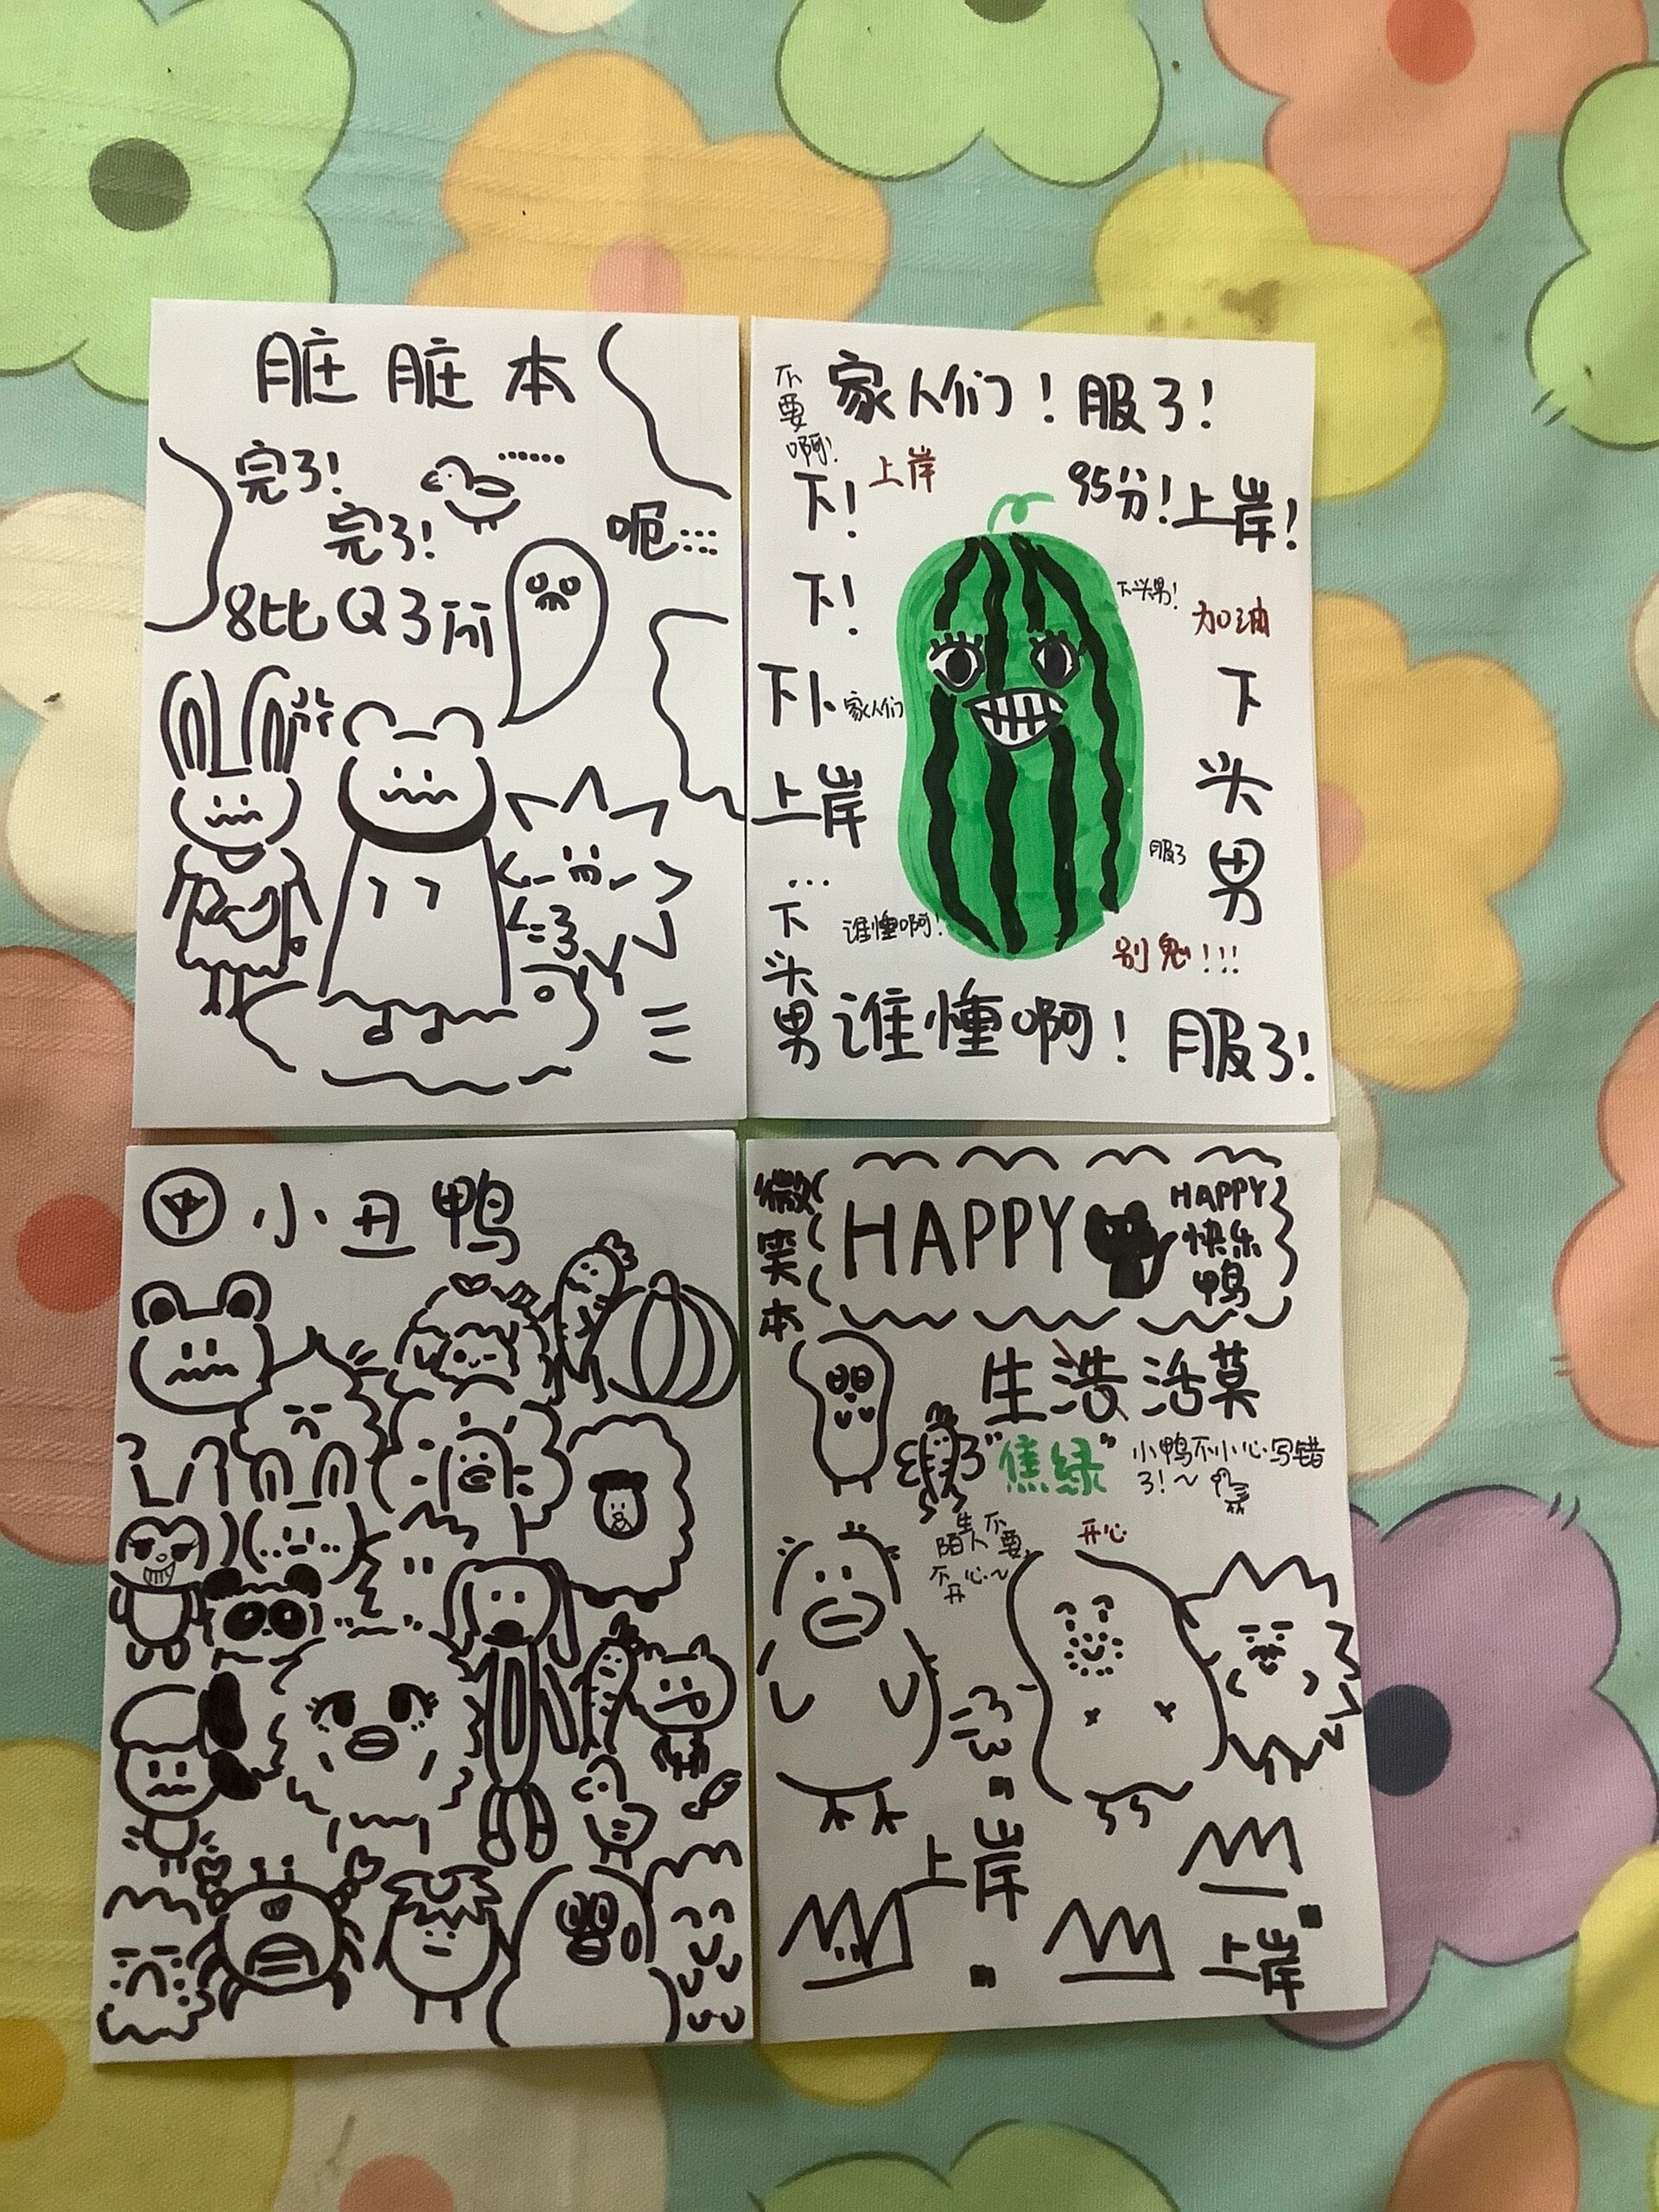 脏脏本
完了!
……
完了!
呃……
8比Q了
家人们!服了!
不要啊!
上岸
95分!上岸!
下!
下!
下头男!
加油
家人们
上岸
…
下头男
下头男
服了
谁懂啊!
别急!!!
谁懂啊!服了!
小丑鸭
微笑本
HAPPY
HAPPY
快乐
鸭
生浩活莫
"焦绿"
小鸭不小心写错
了!~
陌生人不要
不开心~
开心
上岸
上岸